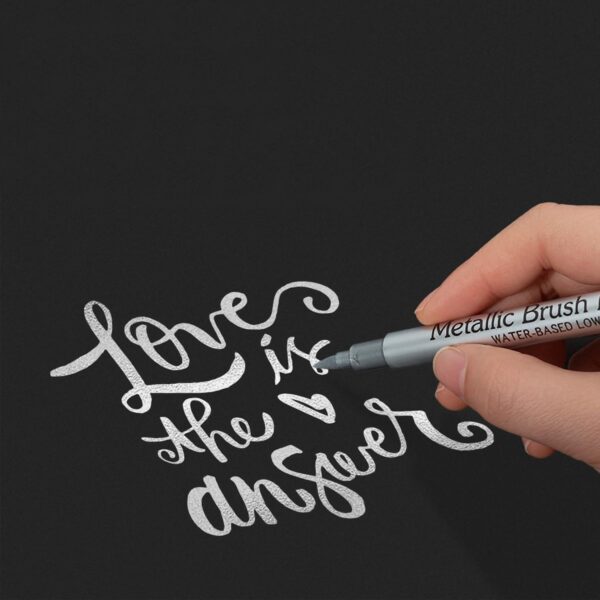 Love
is
the
answer
Metallic Brush
WATER-BASED LOW